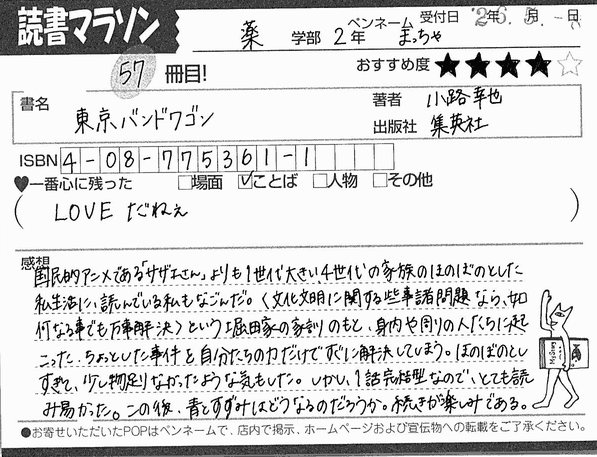 読書マラソン
薬 学部 2年 ペンネーム まっちゃ 受付日 '26年 5月 日
57 冊目! おすすめ度 ★★★★☆
書名 東京バンドワゴン
著者 小路幸也
出版社 集英社
ISBN 4-08-775361-1
♥一番心に残った □場面 ☑ことば □人物 □その他
( LOVE だねぇ )
感想
国民的アニメである「サザエさん」よりも1世代大きい、4世代の家族のほのぼのとした
私生活に、読んでいる私もなごんだ。〈文化文明に関する些事諸問題なら、如
何なる事でも万事解決〉という堀田家の家訓のもと、身内や周りの人たちに起
こった、ちょっとした事件を自分たちの力だけですぐに解決してしまう。ほのぼのとし
すぎて、少し物足りなかったような気もした。しかし、1話完結型なので、とても読
み易かった。この後、青とすずみはどうなるのだろうか。続きが楽しみである。
●お寄せいただいたPOPはペンネームで、店内で掲示、ホームページおよび宣伝物への転載をご了承ください。